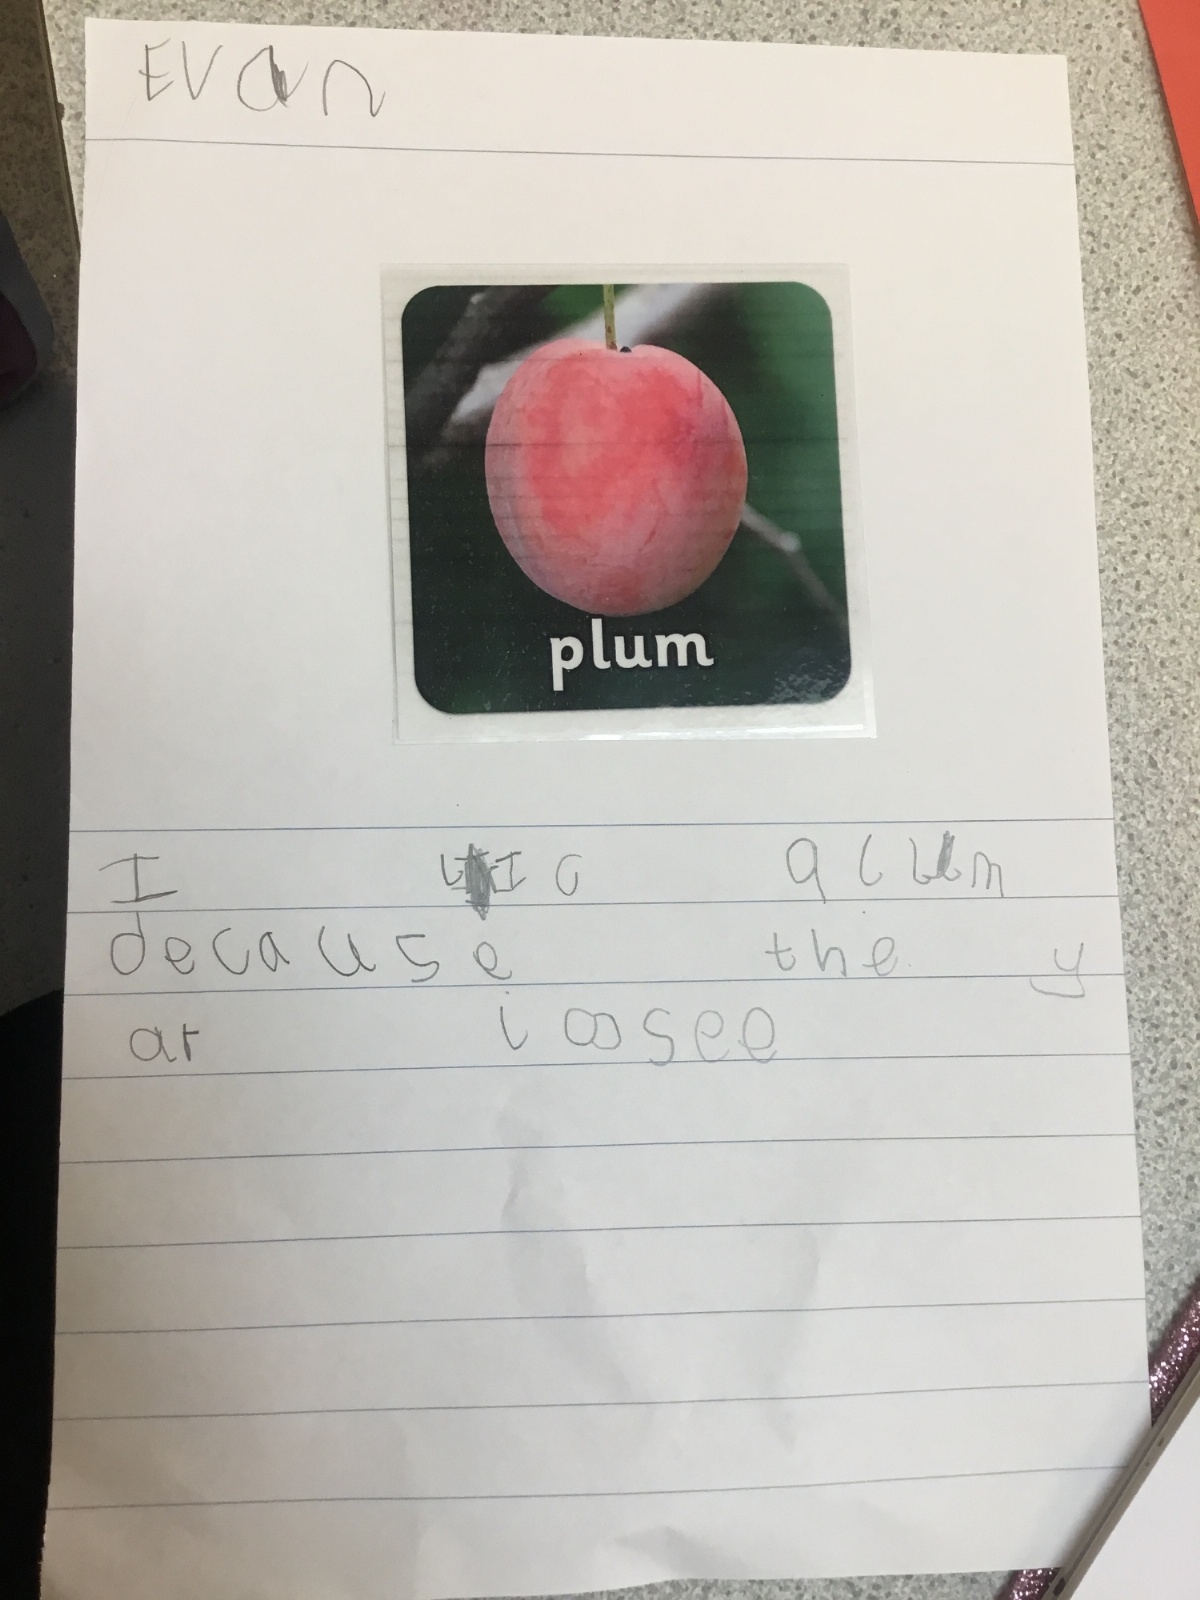 Evan
plum
I lic qlum
decause the y
ar ioosee